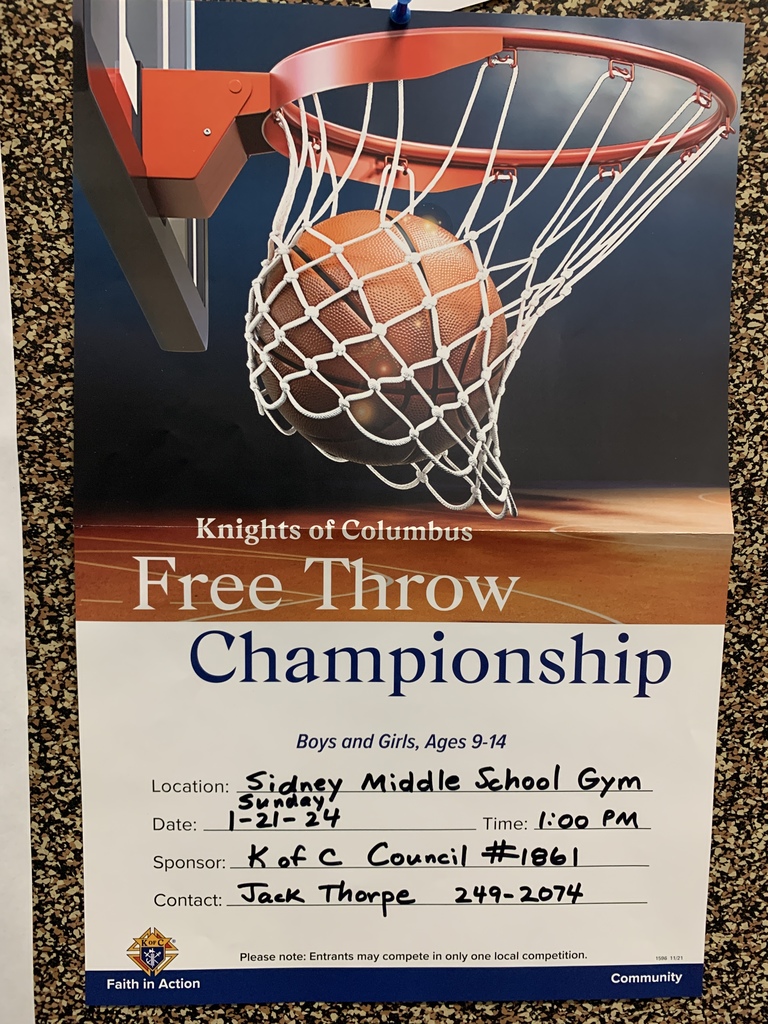 Knights of Columbus
Free Throw
Championship
Boys and Girls, Ages 9-14
Location: Sidney Middle School Gym
Sunday
Date: 1-21-24 Time: 1:00 PM
Sponsor: K of C Council #1861
Contact: Jack Thorpe 249-2074
K OF C
Please note: Entrants may compete in only one local competition.
1598 11/21
Faith in Action Community